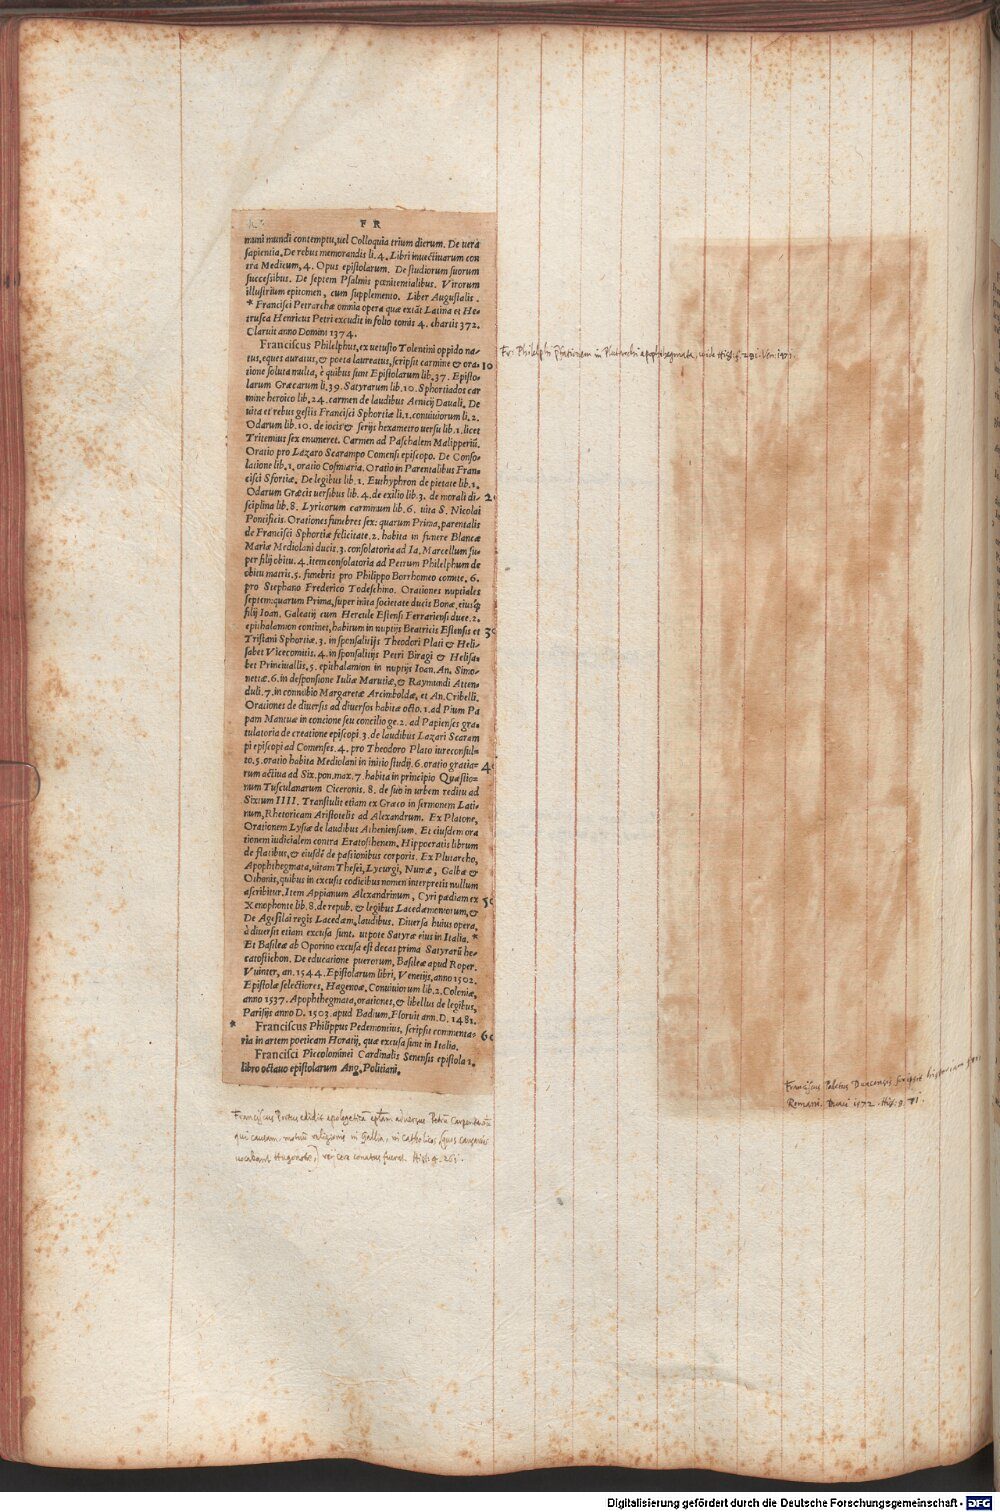 F R
muni mundi contemptu, uel Colloquia trium dierum. De uera
sapientia. De rebus memorandis li. 4. Libri inuectiuarum con
tra Medicum, 4. Opus epistolarum. De studiorum suorum
successibus. De septem Psalmis pœnitentialibus. Virorum
illustrium epitomen, cum supplemento. Liber Augustalis.
* Francisci Petrarchæ omnia opera quæ extāt Latina et He-
trusca Henricus Petri excudit in folio tomis 4. chartis 372.
Claruit anno Domini 1374.
Franciscus Philelphus, ex uetusto Tolentini oppido na-
tus, eques auratus, & poeta laureatus, scripsit carmine & ora- 10
tione soluta multa, è quibus sunt Epistolarum lib. 37. Episto-
larum Græcarum li. 39. Satyrarum lib. 10. Sphortiados car
mine heroico lib. 24. carmen de laudibus Aenicij Dauali. De
uita et rebus gestis Francisci Sphortiæ li. 1. conuiuiorum li. 2.
Odarum lib. 10. de iocis & serijs hexametro uersu lib. 1. licet
Tritemius sex enumeret. Carmen ad Paschalem Malipperiū.
Oratio pro Lazaro Scarampo Comensi episcopo. De Conso-
latione lib. 1. oratio Cosmiaria. Oratio in Parentalibus Fran-
cisci Sfortiæ. De legibus lib. 1. Euthyphron de pietate lib. 1.
Odarum Græcis uersibus lib. 4. de exilio lib. 3. de morali di- 2
sciplina lib. 8. Lyricorum carminum lib. 6. uita S. Nicolai
Pontificis. Orationes funebres sex: quarum Prima, parentalis
de Francisci Sphortiæ felicitate. 2. habita in funere Blancæ
Mariæ Mediolani ducis. 3. consolatoria ad Ia. Marcellum su-
per filij obitu. 4. item consolatoria ad Petrum Philelphum de
obitu matris. 5. funebris pro Philippo Borrhomeo comite. 6.
pro Stephano Frederico Todeschino. Orationes nuptiales
septem: quarum Prima, super inita societate ducis Bonæ, eiusq́;
filij Ioan. Galeatij cum Hercule Estensi Ferrariensi duce. 2.
epithalamion continet, habitum in nuptijs Beatricis Estensis et 30
Tristani Sphortiæ. 3. in sponsalitijs Theodori Plati & Heli-
sabet Vicecomitis. 4. in sponsalitijs Petri Biragi & Helisa-
bet Princiuallis. 5. epithalamion in nuptijs Ioan. An. Simo-
nettæ. 6. in desponsione Iuliæ Marutiæ, & Raymundi Atten-
duli. 7. in connubio Margaretæ Arcimboldæ, et An. Cribelli.
Orationes de diuersis ad diuersos habitæ octo. 1. ad Pium Pa
pam Mantuæ in concione seu concilio ge. 2. ad Papienses gra-
tulatoria de creatione episcopi. 3. de laudibus Lazari Scaram
pi episcopi ad Comenses. 4. pro Theodoro Plato iureconsul-
to. 5. oratio habita Mediolani in initio studij. 6. oratio gratia- 4
rum actiua ad Six. pon. max. 7. habita in principio Quæstio-
num Tusculanarum Ciceronis. 8. de suo in urbem reditu ad
Sixtum IIII. Transtulit etiam ex Græco in sermonem Lati-
num, Rhetoricam Aristotelis ad Alexandrum. Ex Platone,
Orationem Lysiæ de laudibus Atheniensium. Et eiusdem ora
tionem iudicialem contra Eratosthenem. Hippocratis librum
de flatibus, & eiusdē de passionibus corporis. Ex Plutarcho,
Apophthegmata, uitam Thesei, Lycurgi, Numæ, Galbæ &
Othonis, quibus in excusis codicibus nomen interpretis nullum
ascribitur. Item Appianum Alexandrinum, Cyri pædiam ex 5
Xenophonte lib. 8. de repub. & legibus Lacedæmoniorum, &
De Agesilai regis Lacedæm. laudibus. Diuersa huius opera,
à diuersis etiam excusa sunt, utpote Satyræ eius in Italia. *
Et Basileæ ab Oporino excusa est decas prima Satyrarū he-
catostichon. De educatione puerorum, Basileæ apud Roper.
Vuinter, an. 1544. Epistolarum libri, Venetijs, anno 1502.
Epistolæ selectiores, Hagenoæ. Conuiuiorum lib. 2. Coloniæ,
anno 1537. Apophthegmata, orationes, & libellus de legibus,
Parisijs anno D. 1503. apud Badium. Floruit ann. D. 1481.
* Franciscus Philippus Pedemontius, scripsit commenta- 60
ria in artem poeticam Horatij, quæ excusa sunt in Italia.
Francisci Piccolominei Cardinalis Senensis epistola 1.
libro octauo epistolarum Ang. Politiani.
Fr: Philelphi in Plutarchi apophthegmata, vide
Franciscus Portus edidit apologeticā adversus Petrū Carpentariū
qui causam, religionis in Gallia, in catholicos
vocabant conatus fuerat. Hist. 4.
Franciscus Duacensis scripsit
Romani. Duaci 1572.
Digitalisierung gefördert durch die Deutsche Forschungsgemeinschaft - DFG